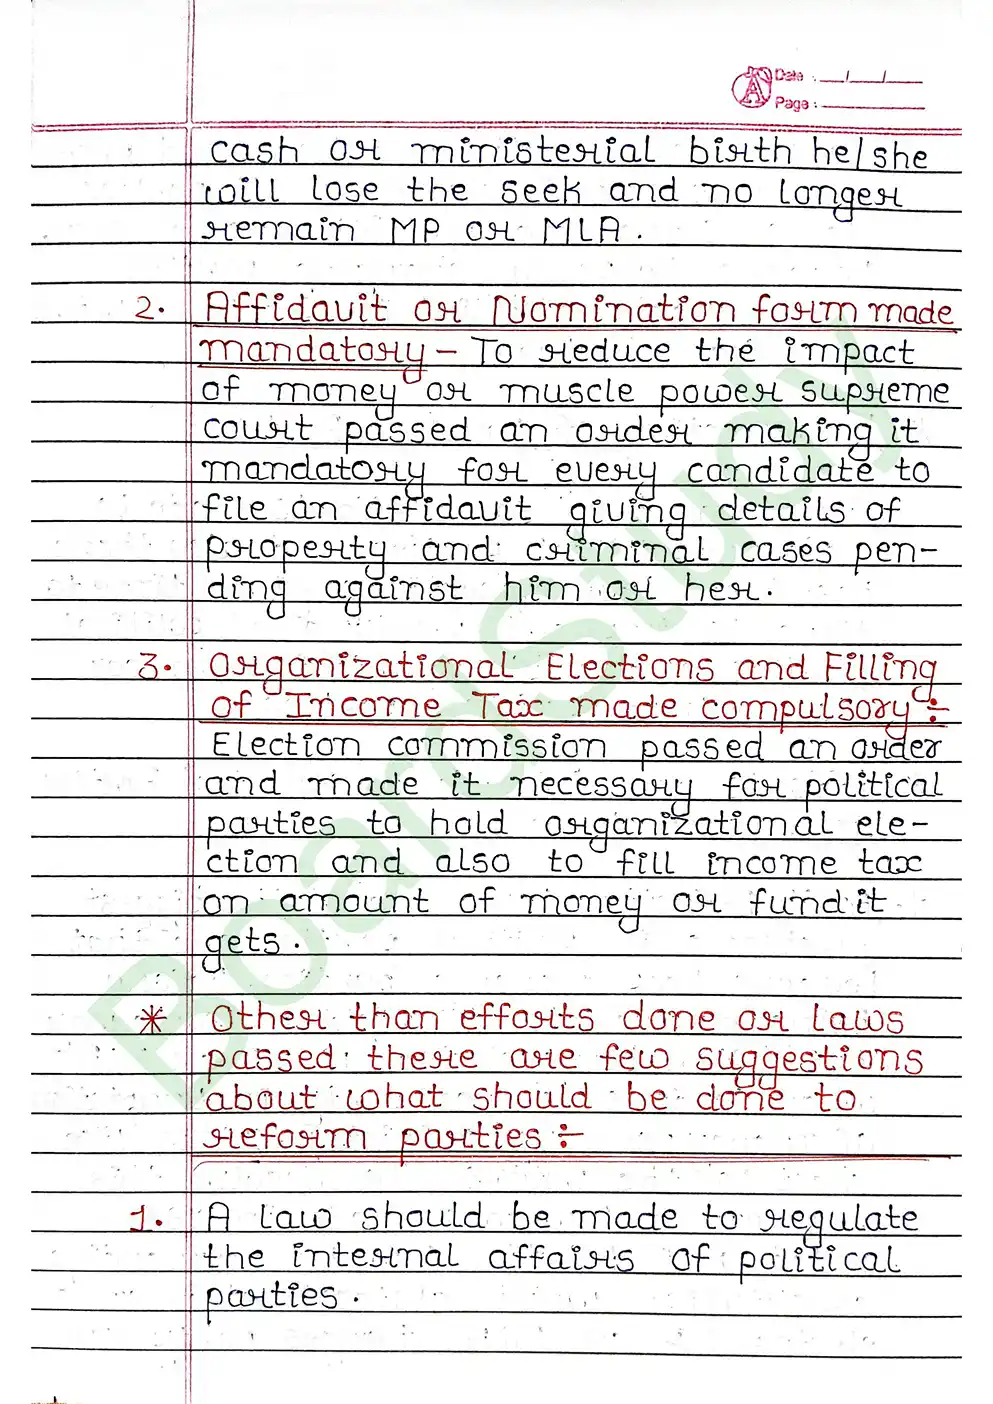 Date : __/__/__
Page :
cash or ministerial birth he/she
will lose the seek and no longer
remain MP or MLA.
2. Affidavit or Nomination form made
mandatory - To reduce the impact
of money or muscle power supreme
court passed an order making it
mandatory for every candidate to
file an affidavit giving details of
property and criminal cases pen-
ding against him or her.
3. Organizational Elections and Filling
of Income Tax made compulsory :-
Election commission passed an order
and made it necessary for political
parties to hold organizational ele-
ction and also to fill income tax
on amount of money or fund it
gets.
* Other than efforts done or laws
passed there are few suggestions
about what should be done to
reform parties :-
1. A law should be made to regulate
the internal affairs of political
parties.
BoardStudy